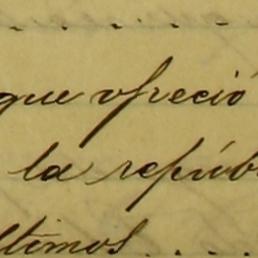 que ofreció
la repúb
ltimos....